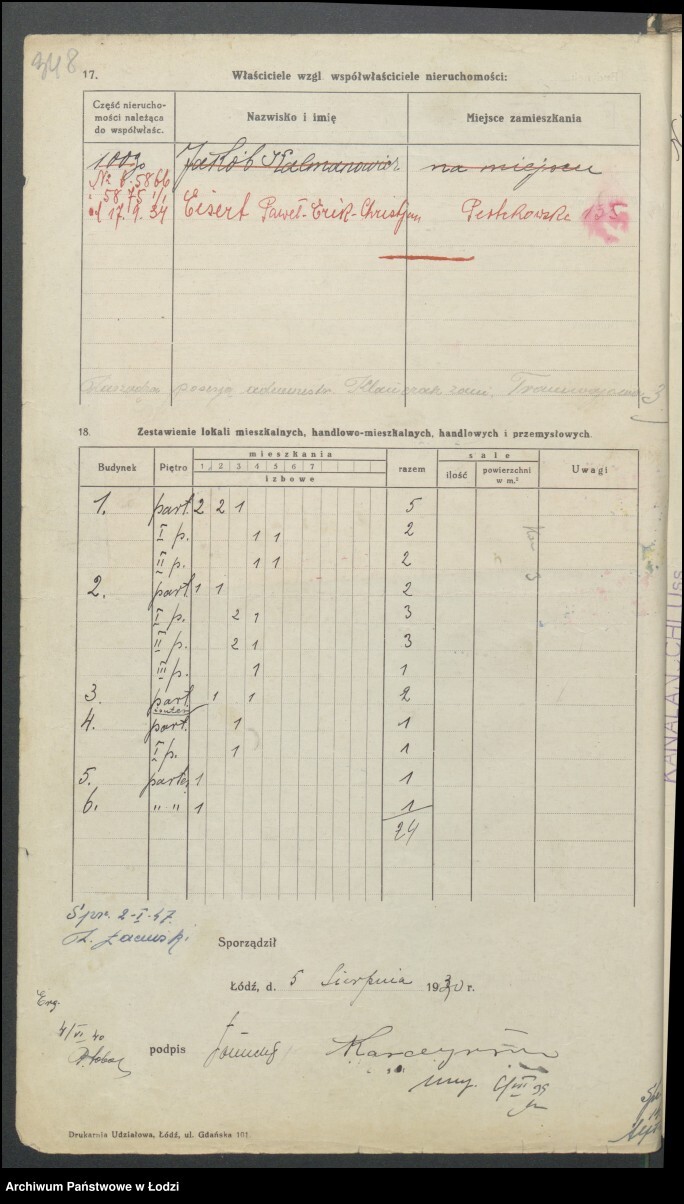 348
17. Właściciele wzgl. współwłaściciele nieruchomości:
Część nierucho-
mości należąca
do współwłaśc.
Nazwisko i imię
Miejsce zamieszkania
100% Jakób Kalmanowicz na miejscu
Nr 5866
5875
17.9.34 Eisert Paweł-Erik-Christjan 135
administr. zam. Tramwajowa 3
18. Zestawienie lokali mieszkalnych, handlowo-mieszkalnych, handlowych i przemysłowych.
Budynek Piętro mieszkania razem sale Uwagi
1 2 3 4 5 6 7 ilość powierzchni w m.²
izbowe
1. part. 2 2 1 5
I p. 1 1 2
II p. 1 1 2
2. part. 1 1 2
I p. 2 1 3
II p. 2 1 3
III p. 1 1
3. part. 1 1 2
4. part. 1 1
I p. 1 1
5. parter 1 1
6. " " 1 1
24
Spr. 2-I-47
Sporządził
Łódź, d. 5 Sierpnia 1930 r.
4/VI 40
podpis
KANALANSCHLUSS
Drukarnia Udziałowa, Łódź, ul. Gdańska 101.
Archiwum Państwowe w Łodzi